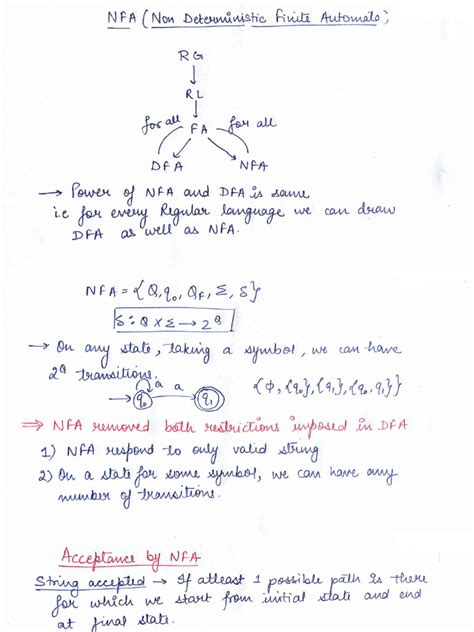 NFA (Non Deterministic Finite Automata)
RG
RL
for all FA for all
DFA NFA
→ Power of NFA and DFA is same
i.e for every Regular language we can draw
DFA as well as NFA.
NFA = {Q, q₀, Q_F, Σ, δ}
δ : Q × Σ → 2^Q
→ On any state, taking a symbol, we can have
2^Q transitions.
a a
q₀ q₁ {ϕ, {q₀}, {q₁}, {q₀, q₁}}
⇒ NFA removed both restrictions imposed in DFA
1) NFA respond to only valid string
2) On a state for some symbol, we can have any
number of transitions.
Acceptance by NFA
String accepted → If atleast 1 possible path is there
for which we start from initial state and end
at final state.